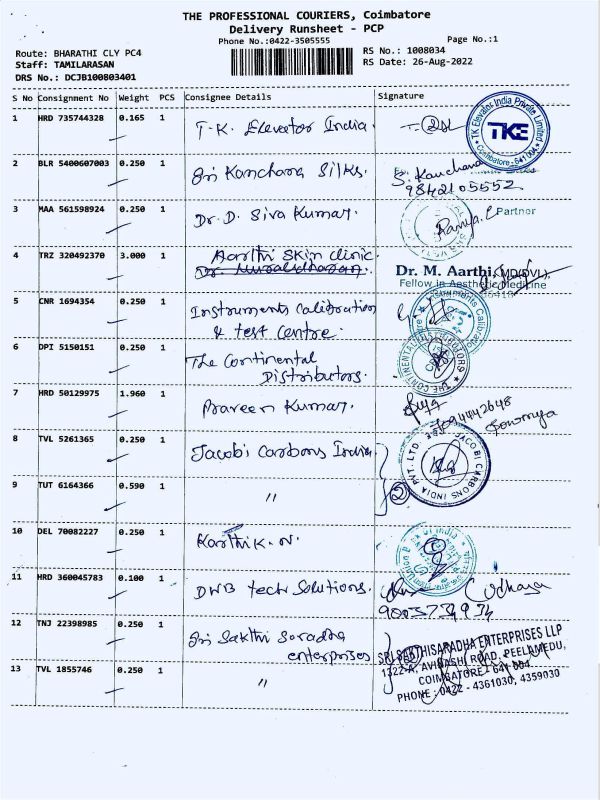 THE PROFESSIONAL COURIERS, Coimbatore
Delivery Runsheet - PCP
Phone No.:0422-3505555
Page No.:1
Route: BHARATHI CLY PC4
RS No.: 1008034
Staff: TAMILARASAN
RS Date: 26-Aug-2022
DRS No.: DCJB100803401
S No Consignment No Weight PCS Consignee Details Signature
1 HRD 735744328 0.165 1 T.K. Elevator India.
TK Elevator India Private Limited
TKE
Coimbatore - 641 004
2 BLR 5400607003 0.250 1 Sri Kanchana Silks.
S. Kanchana
9842105552
3 MAA 561598924 0.250 1 Dr. D. Siva Kumar.
Partner
4 TRZ 320492370 3.000 1 Aarthi Skin clinic.
Dr. Muralidharan.
Dr. M. Aarthi, MD(DVL),
Fellow in Aesthetic Medicine
5 CNR 1694354 0.250 1 Instruments Calibration
& test Centre.
6 DPI 5150151 0.250 1 The Continental
Distributors.
THE CONTINENTAL DISTRIBUTORS
7 HRD 50129975 1.960 1 Praveen Kumar.
Sowmya
8 TVL 5261365 0.250 1 Jacobi Carbons India
JACOBI CARBONS INDIA PVT. LTD.
9 TUT 6164366 0.590 1 "
2
10 DEL 70082227 0.250 1 Karthik. N.
11 HRD 360045783 0.100 1 DWB tech Solutions.
Udhaya
9003734934
12 TNJ 22398985 0.250 1 Sri Sakthi Saradha
enterprises
SRI SAKTHISARADHA ENTERPRISES LLP
1322-A, AVINASHI ROAD, PEELAMEDU,
COIMBATORE - 641 004
PHONE : 0422 - 4361030, 4359030
13 TVL 1855746 0.250 1 "